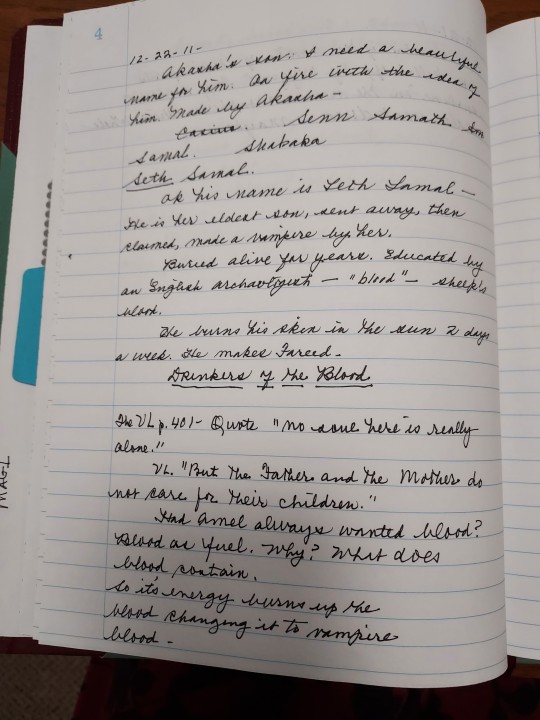 4
12-22-11-
Akasha's son. I need a beautiful
name for him. On fire with the idea of
him. Made by Akasha -
Cassius. Senn Samath Son
Samal. Shabaka
Seth Samal.
Ok his name is Seth Samal -
He is her eldest son, sent away, then
claimed, made a vampire by her.
Buried alive for years. Educated by
an English archaologist - "blood" - sheep's
blood.
He burns his skin in the sun 2 days
a week. He makes Fareed -
Drinkers of the Blood
The VL p. 401 - Quote "no one here is really
alone."
VL. "But the Father and the Mother do
not care for their children."
Had Amel always wanted blood?
Blood as fuel. Why? What does
blood contain.
So it's energy burns up the
blood changing it to vampire
blood -
MAG-L